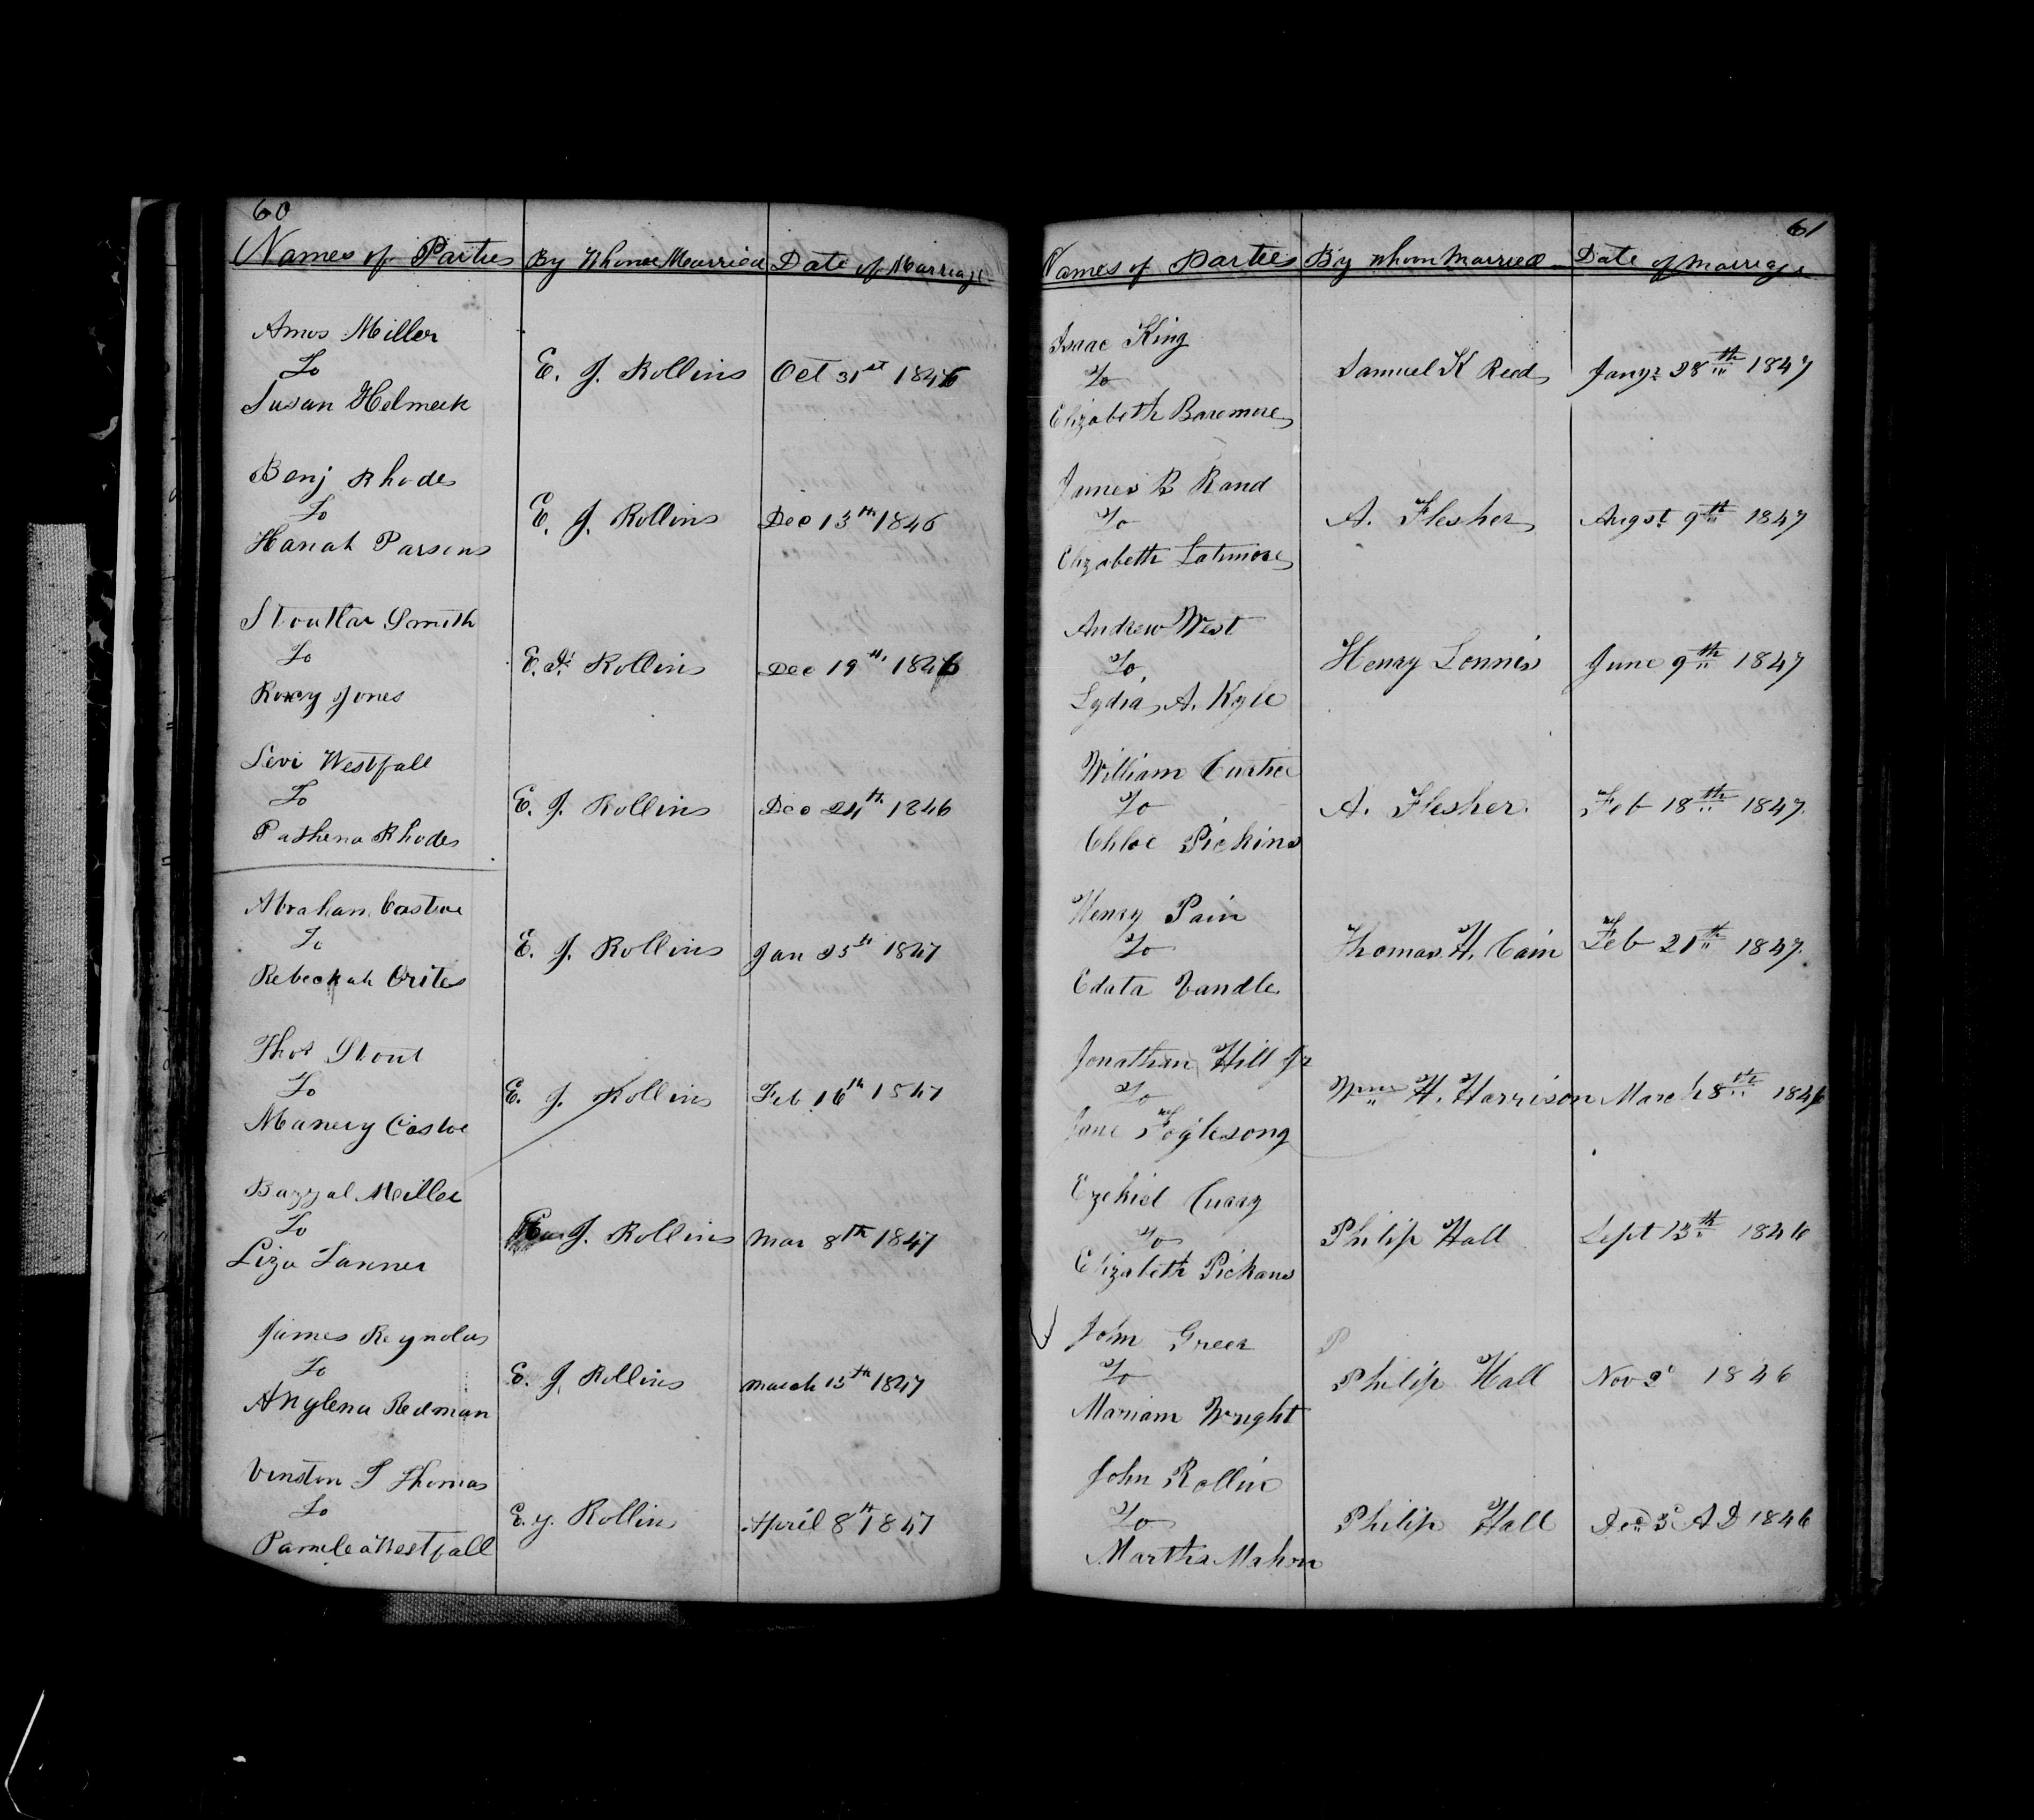 60
Names of Parties By Whome Married Date of Marriage
Amos Miller
To
E. J. Rollins Oct 31st 1846
Susan Helmeek
Benj Rhodes
To
E. J. Rollins Dec 13th 1846
Hanah Parsons
Stoutlar Smith
To
E. J. Rollins Dec 19th 1846
Roxy Jones
Levi Westfall
To
E. J. Rollins Dec 24th 1846
Pathena Rhodes
Abraham Castoe
To
E. J. Rollins Jan 25th 1847
Rebeckah Orites
Thos Stout
To
E. J. Rollins Feb 16th 1847
Manery Castoe
Bazzal Miller
To
J. Rollins Mar 8th 1847
Liza Lanner
James Reynolds
To
E. J. Rollins March 15th 1847
Anylena Redman
Vinston T Thomas
To
E. J. Rollins April 8th 1847
Pamelea Westfall
61
Names of Parties By whom Married Date of Marriage
Isaac King
To
Samuel K Reed Jany 28th 1847
Elizabeth Baremore
James B Rand
To
A. Flesher Augst 9th 1847
Elizabeth Latimore
Andrew West
To
Henry Lennis June 9th 1847
Lydia A. Kyle
William Curtice
To
A. Flesher Feb 18th 1847
Chloe Pickins
Henry Pain
To
Thomas H. Cain Feb 21th 1847
Edata Vandle
Jonathan Hill Jr
To
Wm H. Harrison March 8th 1846
Jane Foglesong
Ezekiel Curry
To
Philip Hall Sept 13th 1846
Elizabeth Pickans
John Greer
To
Philip Hall Nov 2d 1846
Mariam Wright
John Rollin
To
Philip Hall Dec 3d A D 1846
Martha Mahon